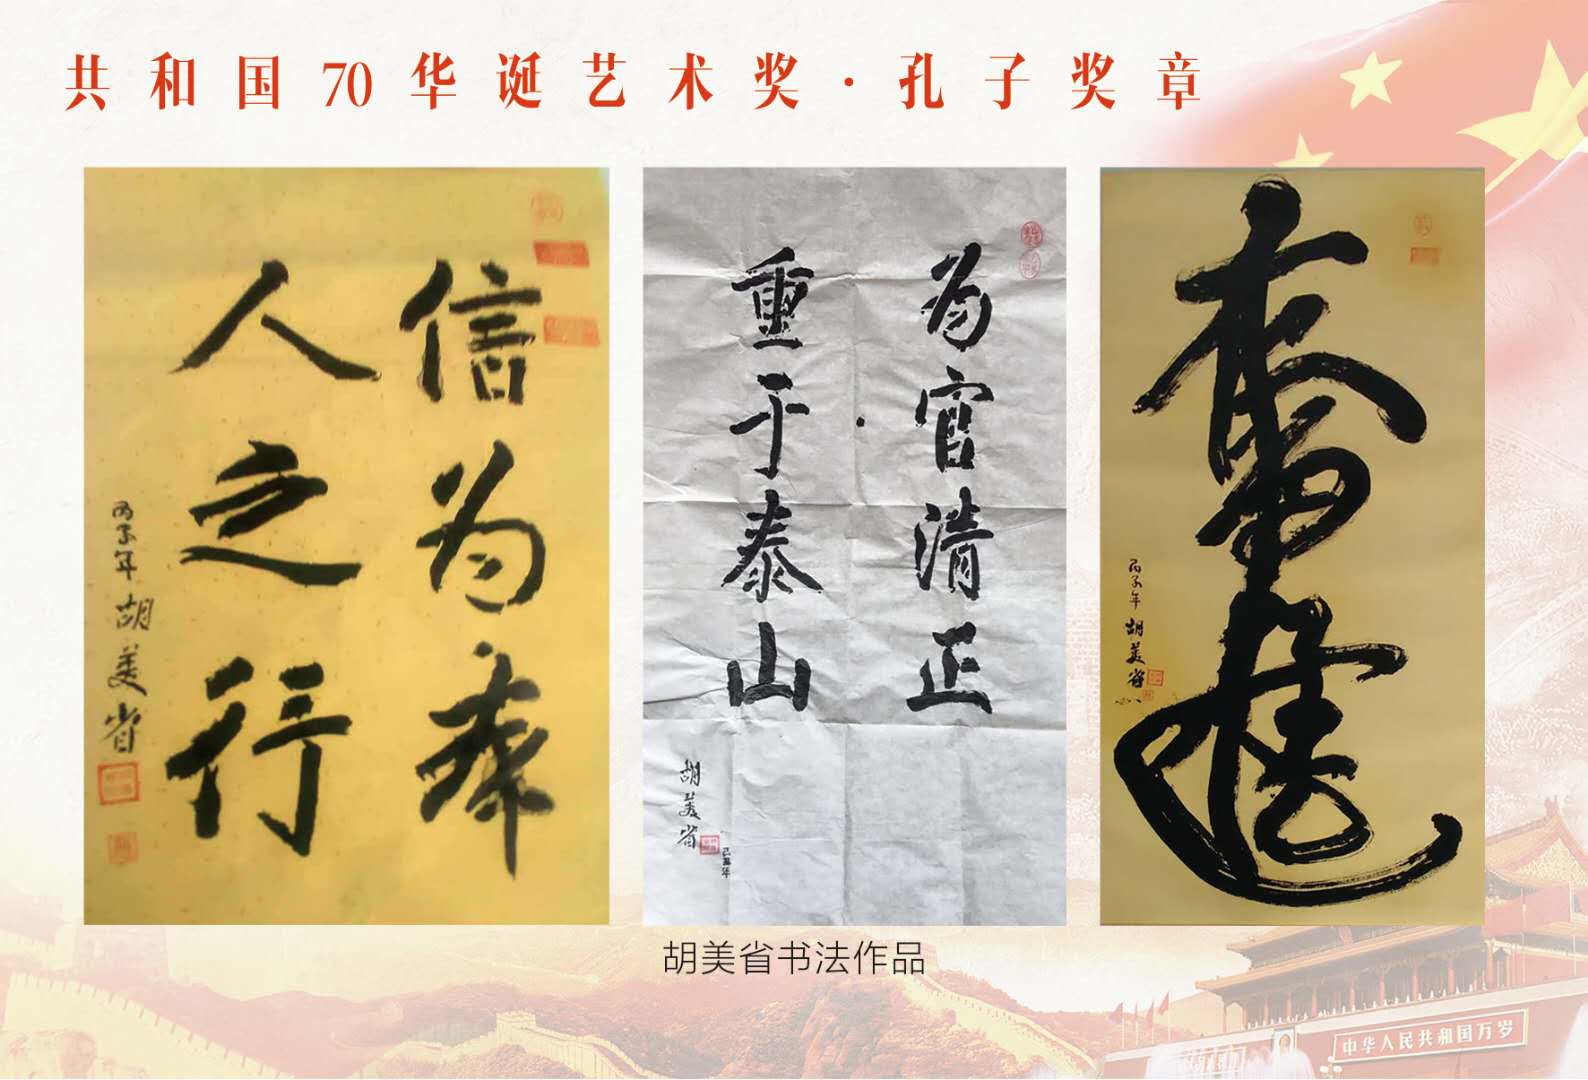 共和国70华诞艺术奖·孔子奖章
信为
人之行
丙子年 胡美省
为官清正
重于泰山
胡美省
己丑年
奮進
丙子年 胡美省
胡美省书法作品
中华人民共和国万岁